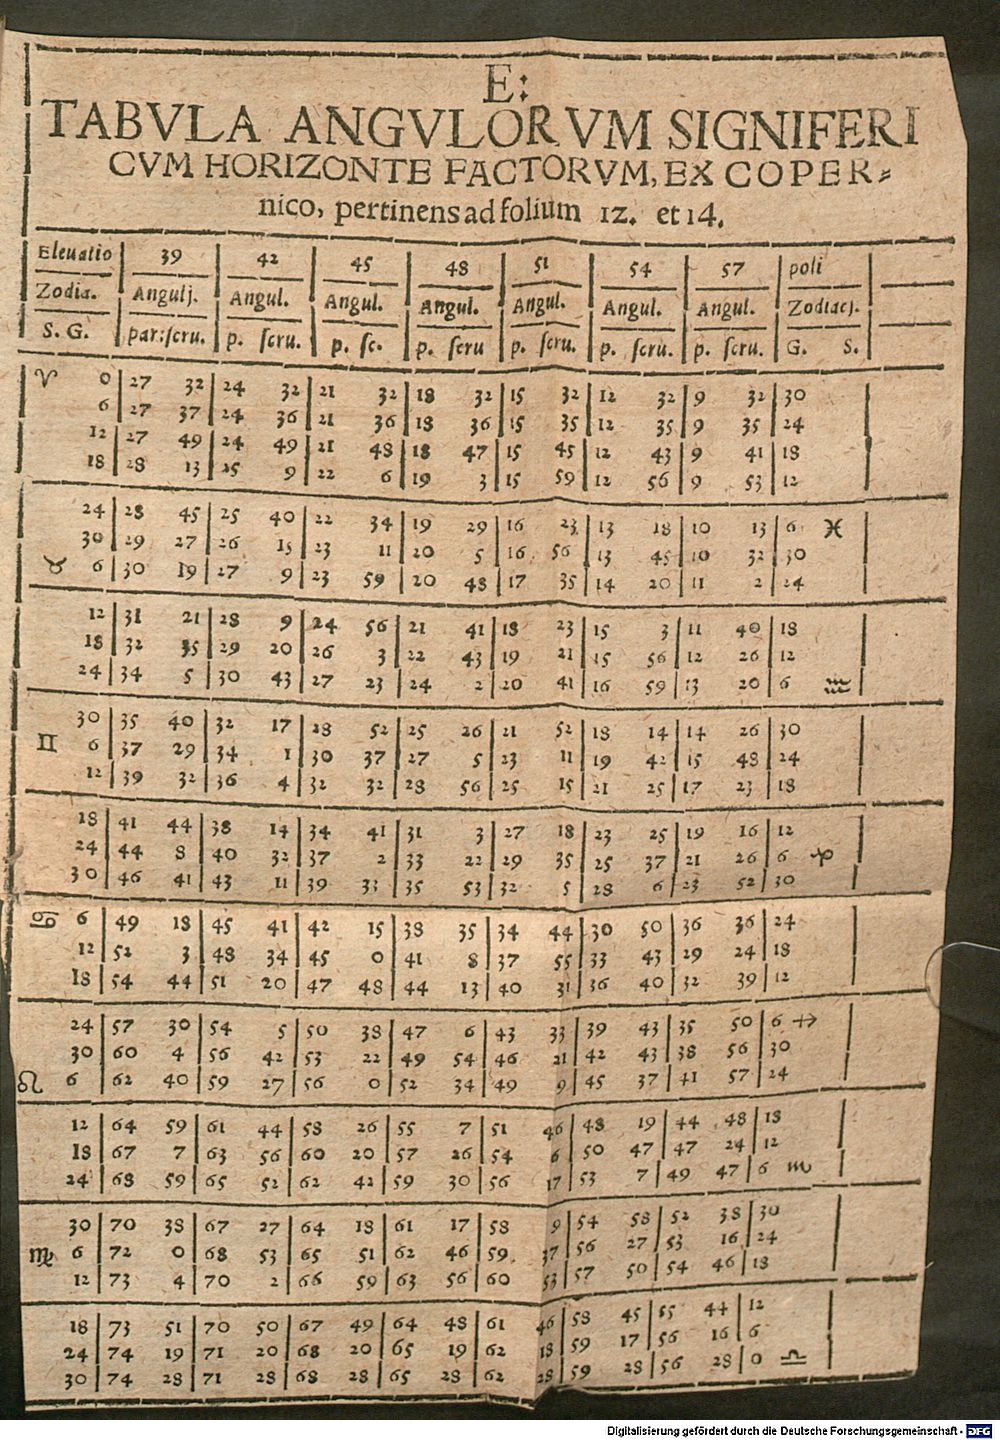 E:
TABVLA ANGVLORVM SIGNIFERI
CVM HORIZONTE FACTORVM, EX COPER⸗
nico, pertinens ad folium 12. et 14.
Eleuatio 39 42 45 48 51 54 57 poli
Zodia. Angulj. Angul. Angul. Angul. Angul. Angul. Angul. Zodiacj.
S. G. par: ſcru. p. ſcru. p. ſc. p. ſcru p. ſcru. p. ſcru. p. ſcru. G. S.
♈ 0 27 32 24 32 21 32 18 32 15 32 12 32 9 32 30
6 27 37 24 36 21 36 18 36 15 35 12 35 9 35 24
12 27 49 24 49 21 48 18 47 15 45 12 43 9 41 18
18 28 13 25 9 22 6 19 3 15 59 12 56 9 53 12
24 28 45 25 40 22 34 19 29 16 23 13 18 10 13 6 ♓
30 29 27 26 15 23 11 20 5 16 56 13 45 10 32 30
♉ 6 30 19 27 9 23 59 20 48 17 35 14 20 11 2 24
12 31 21 28 9 24 56 21 41 18 23 15 3 11 40 18
18 32 35 29 20 26 3 22 43 19 21 15 56 12 26 12
24 34 5 30 43 27 23 24 2 20 41 16 59 13 20 6 ♒
30 35 40 32 17 28 52 25 26 21 52 18 14 14 26 30
♊ 6 37 29 34 1 30 37 27 5 23 11 19 42 15 48 24
12 39 32 36 4 32 32 28 56 25 15 21 25 17 23 18
18 41 44 38 14 34 41 31 3 27 18 23 25 19 16 12
24 44 8 40 32 37 2 33 22 29 35 25 37 21 26 6 ♑
30 46 41 43 11 39 33 35 53 32 5 28 6 23 52 30
♋ 6 49 18 45 41 42 15 38 35 34 44 30 50 36 36 24
12 52 3 48 34 45 0 41 8 37 55 33 43 29 24 18
18 54 44 51 20 47 48 44 13 40 31 36 40 32 39 12
24 57 30 54 5 50 38 47 6 43 33 39 43 35 50 6 ♐
30 60 4 56 42 53 22 49 54 46 21 42 43 38 56 30
♌ 6 62 40 59 27 56 0 52 34 49 9 45 37 41 57 24
12 64 59 61 44 58 26 55 7 51 46 48 19 44 48 18
18 67 7 63 56 60 20 57 26 54 6 50 47 47 24 12
24 68 59 65 52 62 42 59 30 56 17 53 7 49 47 6 ♏
30 70 38 67 27 64 18 61 17 58 9 54 58 52 38 30
♍ 6 72 0 68 53 65 51 62 46 59 37 56 27 53 16 24
12 73 4 70 2 66 59 63 56 60 53 57 50 54 46 18
18 73 51 70 50 67 49 64 48 61 46 58 45 55 44 12
24 74 19 71 20 68 20 65 19 62 18 59 17 56 16 6
30 74 28 71 28 68 28 65 28 62 28 59 28 56 28 0 ♎
Digitalisierung gefördert durch die Deutsche Forschungsgemeinschaft - DFG